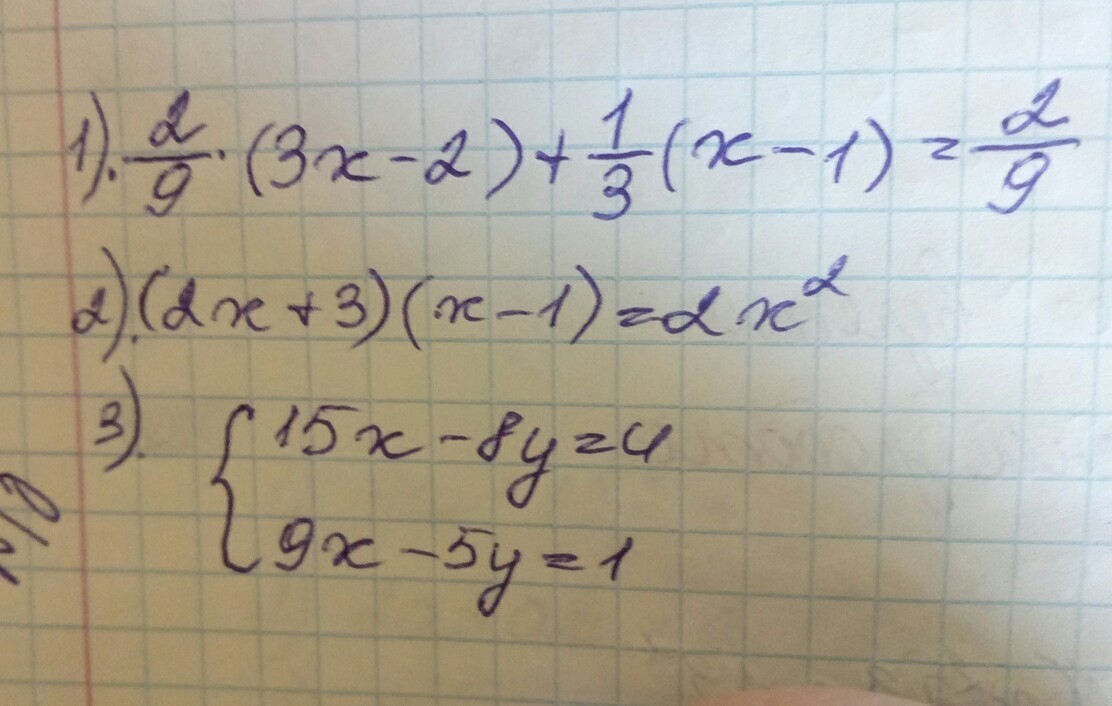 1). 2/9 · (3x - 2) + 1/3 (x - 1) = 2/9
2). (2x + 3)(x - 1) = 2x²
3). { 15x - 8y = 4
9x - 5y = 1